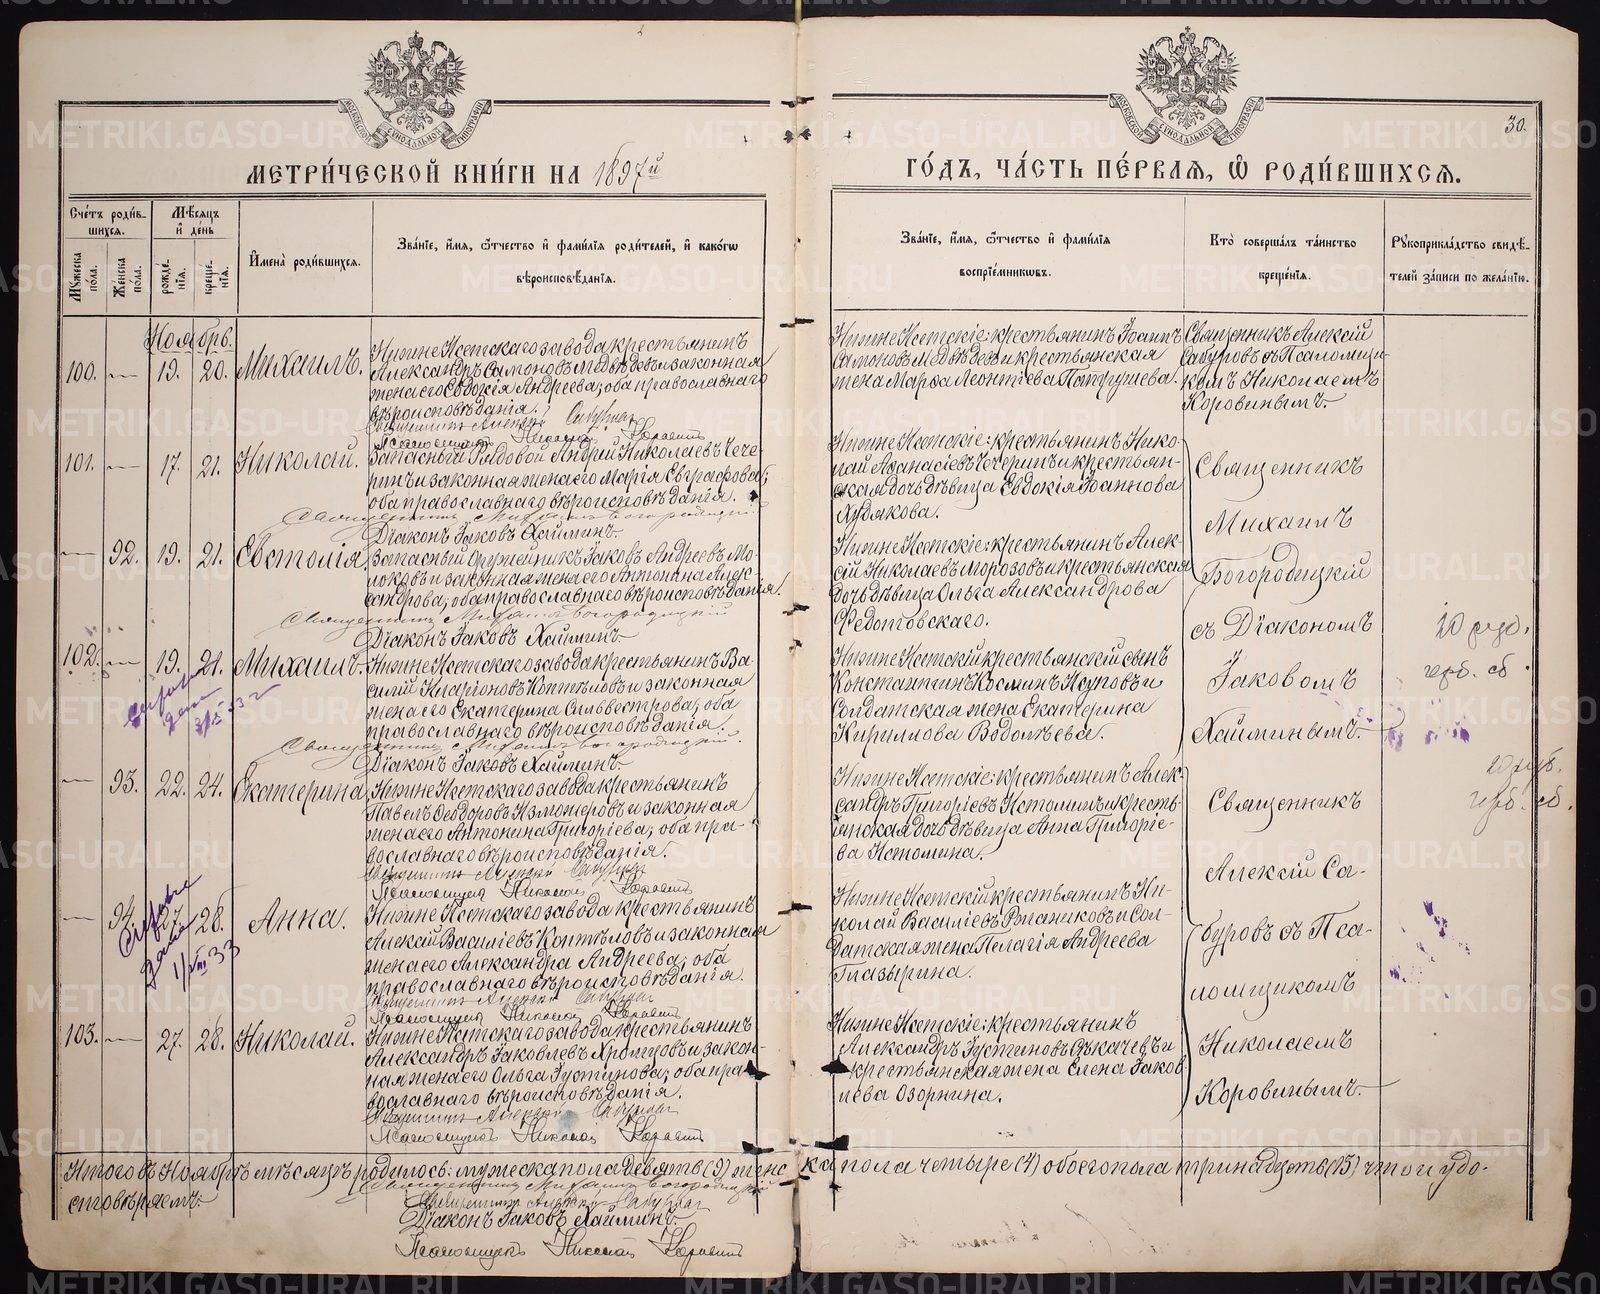 30.
МЕТРИ́ЧЕСКОЙ КНИ́ГИ НА 1897й
ГО́ДЪ, ЧА́СТЬ ПЕ́РВАЯ, Ѡ҆ РОДИ́ВШИХСЯ.
Сче́тъ роди́вшихся.
Мꙋ́жеска по́ла.
Же́нска по́ла.
Мѣ́сяцъ и҆ де́нь
рожде́нїя.
креще́нїя.
И҆мена̀ роди́вшихся.
Зва́нїе, и҆́мя, ѻ҆́тчество и҆ фами́лїя роди́телей, и҆ како́гѡ
вѣроисповѣ́данїя.
Зва́нїе, и҆́мя, ѻ҆́тчество и҆ фами́лїя
воспрїе́мникѡвъ.
Кто̀ соверша́лъ та́инство
креще́нїя.
Рꙋкоприкла́дство свидѣ́-
телей за́писи по жела́нїю.
Ноябрь.
100. — 19. 20. Михаилъ.
Нижне Исетскаго завода крестьянинъ
Александръ Самоновъ Медвѣдевъ и законная
жена его Евдокія Андреева; оба православнаго
вѣроисповѣданія.
Священникъ Алексій Сабуровъ
Псаломщикъ Николай Коровинъ
Нижне Исетскіе: крестьянинъ Іоаннъ
Самоновъ Медвѣдевъ и крестьянская
жена Марѳа Леонтіева Патрушева.
Священникъ Алексій
Сабуровъ съ Псаломщи-
комъ Николаемъ
Коровинымъ.
101. — 17. 21. Николай.
Запасный Рядовой Андрей Николаевъ Чече-
ринъ и законная жена его Марія Евграфова;
оба православнаго вѣроисповѣданія.
Священникъ Михаилъ Богородицкій
Діаконъ Іаковъ Хайминъ.
Нижне Исетскіе: крестьянинъ Нико-
лай Аѳанасіевъ Чечеринъ и крестьян-
ская дочь дѣвица Евдокія Іоаннова
Худякова.
Священникъ
Михаилъ
Богородицкій
съ Діакономъ
Іаковомъ
Хайминымъ.
— 92. 19. 21. Евстолія.
Запасный оружейникъ Іаковъ Андреевъ Мо-
локовъ и законная жена его Антонина Алек-
сандрова; оба православнаго вѣроисповѣданія.
Священникъ Михаилъ Богородицкій
Діаконъ Іаковъ Хайминъ
Нижне Исетскіе: крестьянинъ Алек-
сій Николаевъ Морозовъ и крестьянская
дочь дѣвица Ольга Александрова
Федотовскаго.
102. — 19. 21. Михаилъ.
Нижне Исетскаго завода крестьянинъ Ва-
силій Иларіоновъ Коптѣловъ и законная
жена его Екатерина Сильвестрова; оба
православнаго вѣроисповѣданія.
Священникъ Михаилъ Богородицкій.
Діаконъ Іаковъ Хайминъ.
Нижне Исетскій крестьянскій сынъ
Константинъ Косминъ Исуповъ и
Солдатская жена Екатерина
Кирилова Водолѣева.
герб. сб.
— 93. 22. 24. Екатерина.
Нижне Исетскаго завода крестьянинъ
Павелъ Ѳеодоровъ Измоmеровъ и законная
жена его Антонина Григоріева; оба пра-
вославнаго вѣроисповѣданія.
Священникъ Алексій Сабуровъ
Псаломщикъ Николай Коровинъ
Нижне Исетскіе: крестьянинъ Алек-
сандръ Григоріевъ Истоминъ и кресть-
янская дочь дѣвица Анна Григоріе-
ва Истомина.
Священникъ
Алексій Са-
буровъ съ Пса-
ломщикомъ
Николаемъ
Коровинымъ.
герб. сб.
— 94. 27. 28. Анна.
1/VIII 33
Нижне Исетскаго завода крестьянинъ
Алексій Василіевъ Коптѣловъ и законная
жена его Александра Андреева; оба
православнаго вѣроисповѣданія.
Священникъ Алексій Сабуровъ
Псаломщикъ Николай Коровинъ
Нижне Исетскій крестьянинъ Ни-
колай Василіевъ Ртаниковъ и Сол-
датская жена Пелагія Андреева
Глазырина.
103. — 27. 28. Николай.
Нижне Исетскаго завода крестьянинъ
Александръ Іаковлевъ Хромцовъ и закон-
ная жена его Ольга Іустинова; оба пра-
вославнаго вѣроисповѣданія.
Священникъ Алексій Сабуровъ
Псаломщикъ Николай Коровинъ
Нижне Исетскіе: крестьянинъ
Александръ Іустиновъ Сѣкачевъ и
крестьянская жена Елена Іаков-
лева Озорнина.
Итого въ Ноябрѣ мѣсяцѣ родилось: мужеска пола девять (9) женска пола четыре (4) обоего пола тринадцать (13) что и удо-
стовѣряемъ:
Священникъ Михаилъ Богородицкій
Священникъ Алексій Сабуровъ
Діаконъ Іаковъ Хайминъ.
Псаломщикъ Николай Коровинъ